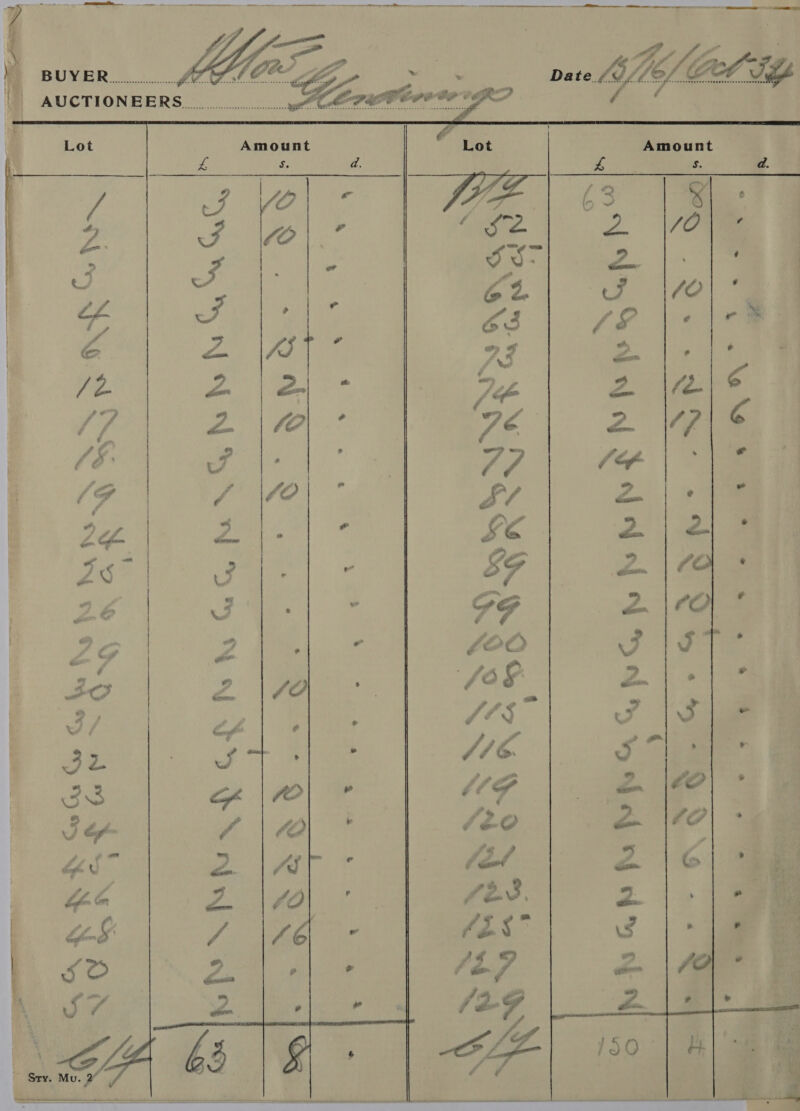 BUYER
Date 15/16/Oct 34
AUCTIONEERS Glendinings
Lot Amount
£ s. d.
1 3 10 -
2 3 10 -
3 3 - -
4 3 - -
6 2 15 -
12 2 2 -
17 2 10 -
18 3 - -
19 1 10 -
24 2 - -
25 3 - -
26 3 - -
29 2 - -
30 2 10 -
31 4 - -
32 5 - -
33 4 10 -
34 1 10 -
45 2 15 -
46 2 10 -
48 1 16 -
50 2 - -
57 2 - -
C/F 63 8 -
Lot Amount
£ s. d.
B/F 63 8 -
52 2 10 -
55 2 - -
62 3 10 -
63 18 - -
73 2 - -
74 2 12 6
76 2 17 6
77 14 - -
81 2 - -
86 2 2 -
89 2 10 -
99 2 10 -
100 3 5 -
108 2 - -
115 3 3 -
116 5 - -
119 2 10 -
120 2 10 -
121 2 6 -
123 2 - -
125 3 - -
127 2 10 -
129 2 - -
C/F 150 4
Sty. Mu. 2